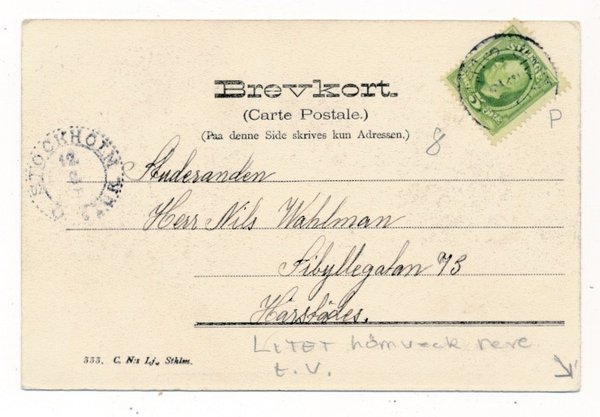 Brevkort.
(Carte Postale.)
(Paa denne Side skrives kun Adressen.)
8
P
STOCKHOLM
12
Studeranden
Herr Nils Wahlman
Sibyllegatan 73
Härstädes.
LITET hörnveck nere
t.v.
333. C. N:s Lj., Sthlm.